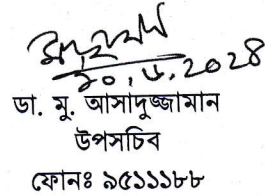 ২০.৬.2024
ডা. মু. আসাদুজ্জামান
উপসচিব
ফোনঃ ৯৫১১১৮৮